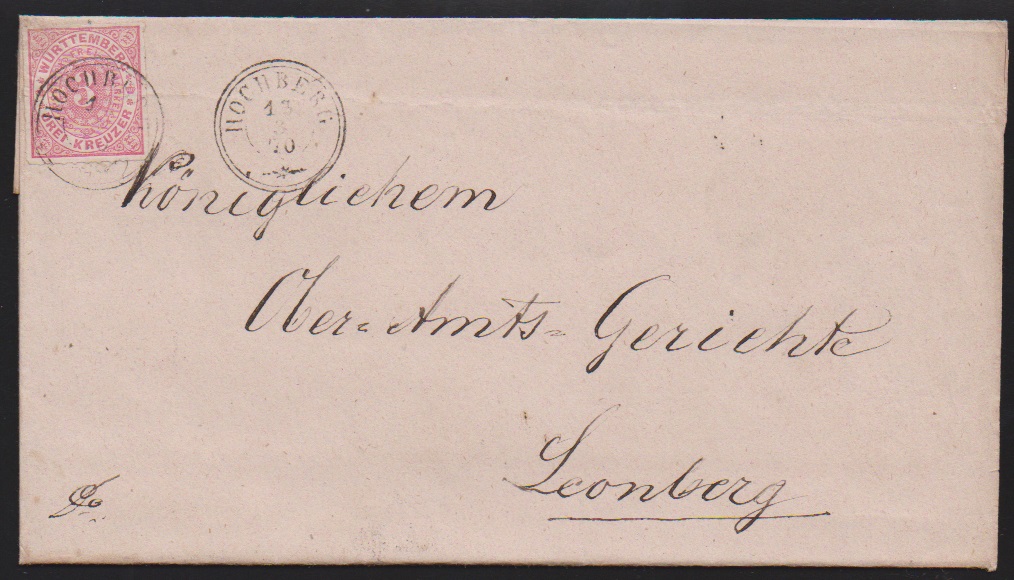 WÜRTTEMBERG
FREI MARKE
3
DREI KREUZER
HOCHBE
1
HOCHBERG
13
3
70
Königlichem
Ober-Amts-Gerichte
Leonberg